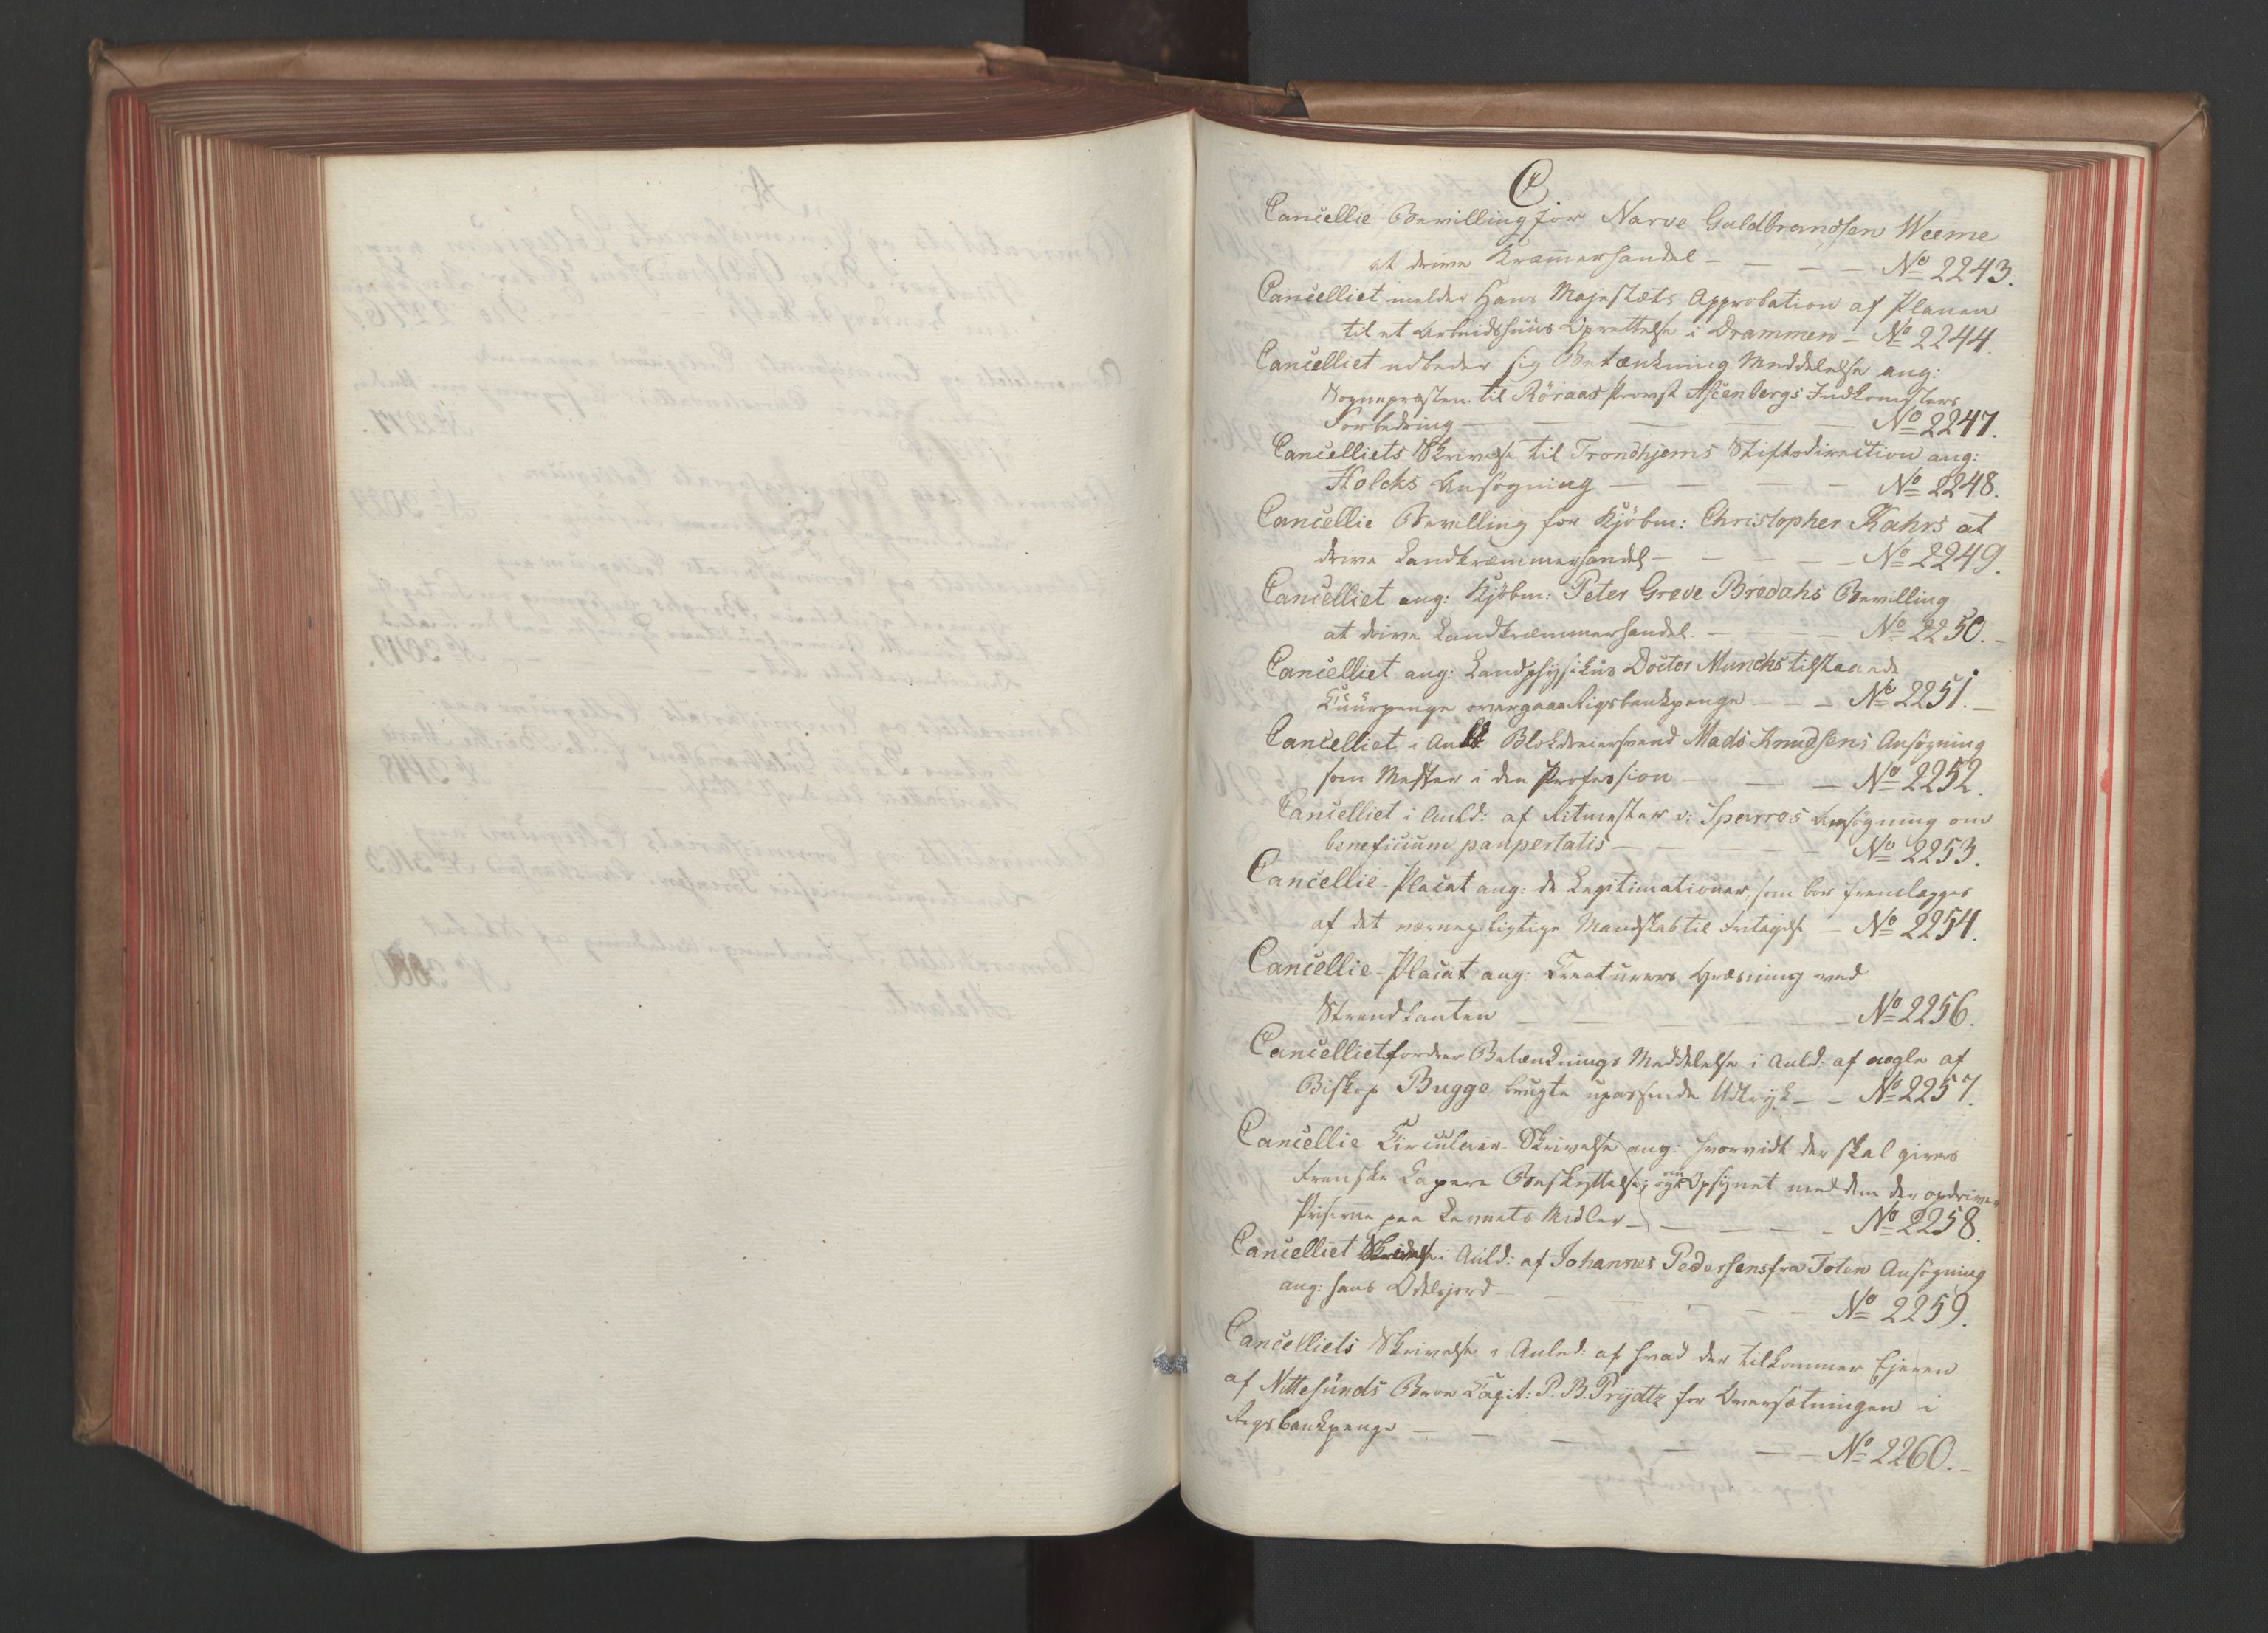 C.
Cancellie Bevilling for Narve Guldbrandsen Weeme
at drive Kræmmerhandel - - - - No 2243.
Cancelliet melder Hans Majestæts Approbation af Planen
til et Arbeidshuus Oprettelse i Drammen - No 2244.
Cancelliet udbeder sig Betænkning Meddelelse ang:
Sognepræsten til Röraas Provst Ascenbergs Indkomsters
Forbedring - - - - No 2247.
Cancelliets Skrivelse til Trondhjems Stiftsdirection ang:
Holcks Ansögning - - - - No 2248.
Cancellie Bevilling for Kjöbm: Christopher Kahrs at
drive Landkræmmerhandel - - - - No 2249.
Cancelliet ang: Kjöbm: Peter Greve Bredahs Bevilling
at drive Landkræmmerhandel. - - - - No 2250. -
Cancelliet ang: Landphysikus Doctor Munchs tilstaaede
Kuurpenge overgaaae Rigsbankpenge - - - No 2251. -
Cancelliet i Anl Blokdreiersvend Mads Knudsens Ansögning
som Mester i den Profession - - - No 2252.
Cancelliet i Anld: af Ritmester v: Sperros Ansögning om
beneficium paupertatis - - - - No 2253.
Cancellie-Placat ang: de Legitimationer som bör fremlægges
af det værnepligtige Mandskab til Fritagelse - No 2254.
Cancellie-Placat ang: Creaturers Græsning ved
Strandkanten - - - - No 2256.
Cancelliet fordrer Betænknings Meddelelse i Anld: af nogle af
Biskop Bugge brugte upassende Udtryk - - No 2257.
Cancellie Circulaire-Skrivelse ang: hvorvidt der skal gives
Franske Kapere Beskyttelse; og om Opsynet med dem der opdriver
Priserne paa Levnets Midler - - - - No 2258.
Cancelliet Skrivelse i Anld: af Johannes Pedersens fra Toten Ansögning
ang: hans Odelsjord - - - - No 2259.
Cancelliets Skrivelse i Anled: af hvad der tilkommer Ejeren
af Nittesunds Broe Capit: P. B. Prydtz for Oversætningen i
Rigsbankpenge - - - - No 2260. -